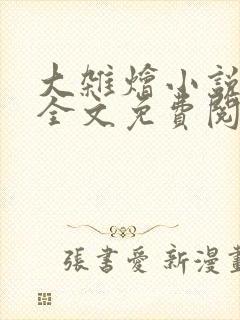 大雑燴小說
全文免費閱
張書愛 新漫畫